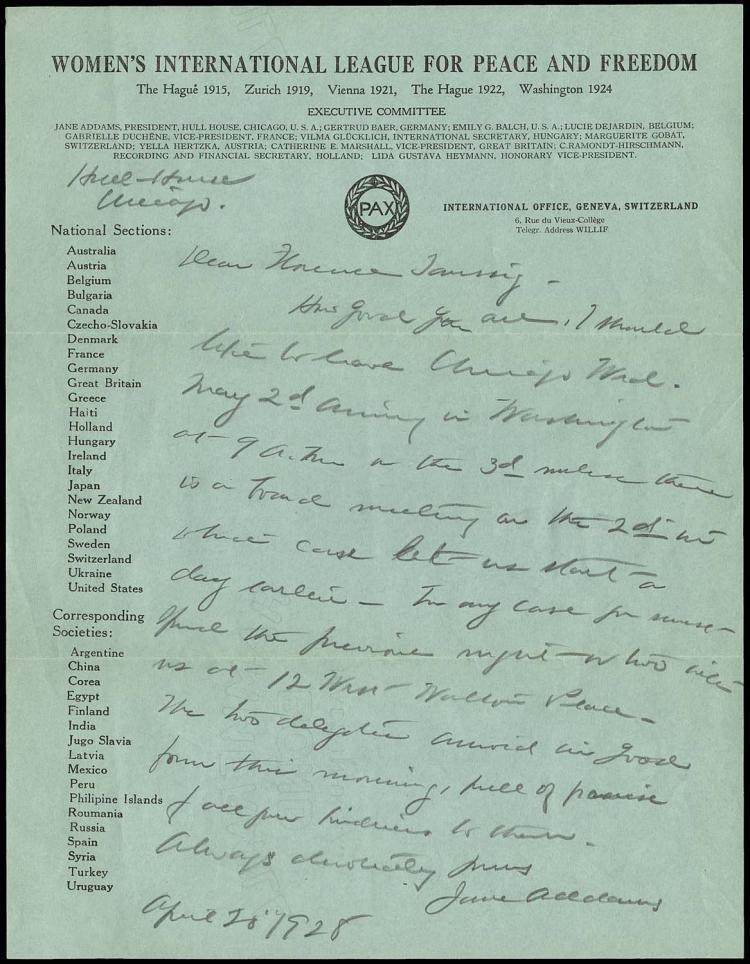 WOMEN'S INTERNATIONAL LEAGUE FOR PEACE AND FREEDOM
The Hague 1915, Zurich 1919, Vienna 1921, The Hague 1922, Washington 1924
EXECUTIVE COMMITTEE
JANE ADDAMS, PRESIDENT, HULL HOUSE, CHICAGO, U. S. A.; GERTRUD BAER, GERMANY; EMILY G. BALCH, U. S. A.; LUCIE DEJARDIN, BELGIUM;
GABRIELLE DUCHÊNE, VICE-PRESIDENT, FRANCE; VILMA GLÜCKLICH, INTERNATIONAL SECRETARY, HUNGARY; MARGUERITE GOBAT,
SWITZERLAND; YELLA HERTZKA, AUSTRIA; CATHERINE E. MARSHALL, VICE-PRESIDENT, GREAT BRITAIN; C.RAMONDT-HIRSCHMANN,
RECORDING AND FINANCIAL SECRETARY, HOLLAND; LIDA GUSTAVA HEYMANN, HONORARY VICE-PRESIDENT.
Hull-House
Chicago.
PAX
INTERNATIONAL OFFICE, GENEVA, SWITZERLAND
6, Rue du Vieux-Collège
Telegr. Address WILLIF
National Sections:
Australia
Austria
Belgium
Bulgaria
Canada
Czecho-Slovakia
Denmark
France
Germany
Great Britain
Greece
Haiti
Holland
Hungary
Ireland
Italy
Japan
New Zealand
Norway
Poland
Sweden
Switzerland
Ukraine
United States
Corresponding
Societies:
Argentine
China
Corea
Egypt
Finland
India
Jugo Slavia
Latvia
Mexico
Peru
Philipine Islands
Roumania
Russia
Spain
Syria
Turkey
Uruguay
Dear Florence Taussig –
How good you are, I should
like to leave Chicago Wed.
May 2d arriving in Washington
at 9 A.M. on the 3d unless there
is a board meeting on the 2d in
which case let us start a
day earlier – In any case
the previous night or two with
us at 12 West Walton Place –
The two delegates arrived in good
form this morning, full of praise
of all your kindness to them –
Always devotedly yours
Jane Addams
April 1928